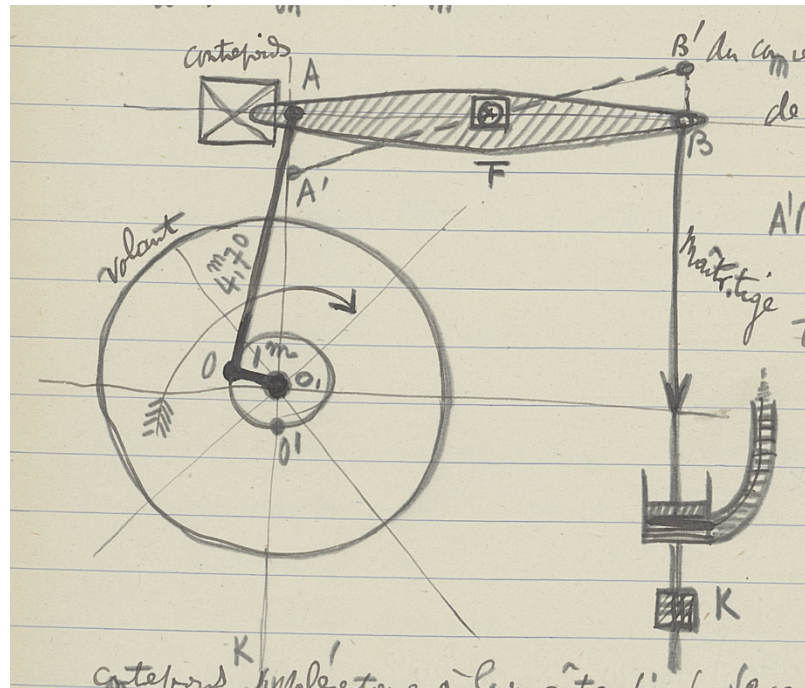 contrepoids
A
B' du
de
B
F
A'
A'
volant
m
4,70
Maitr. tige
O
1m
O,
O'
K
K
contrepoids